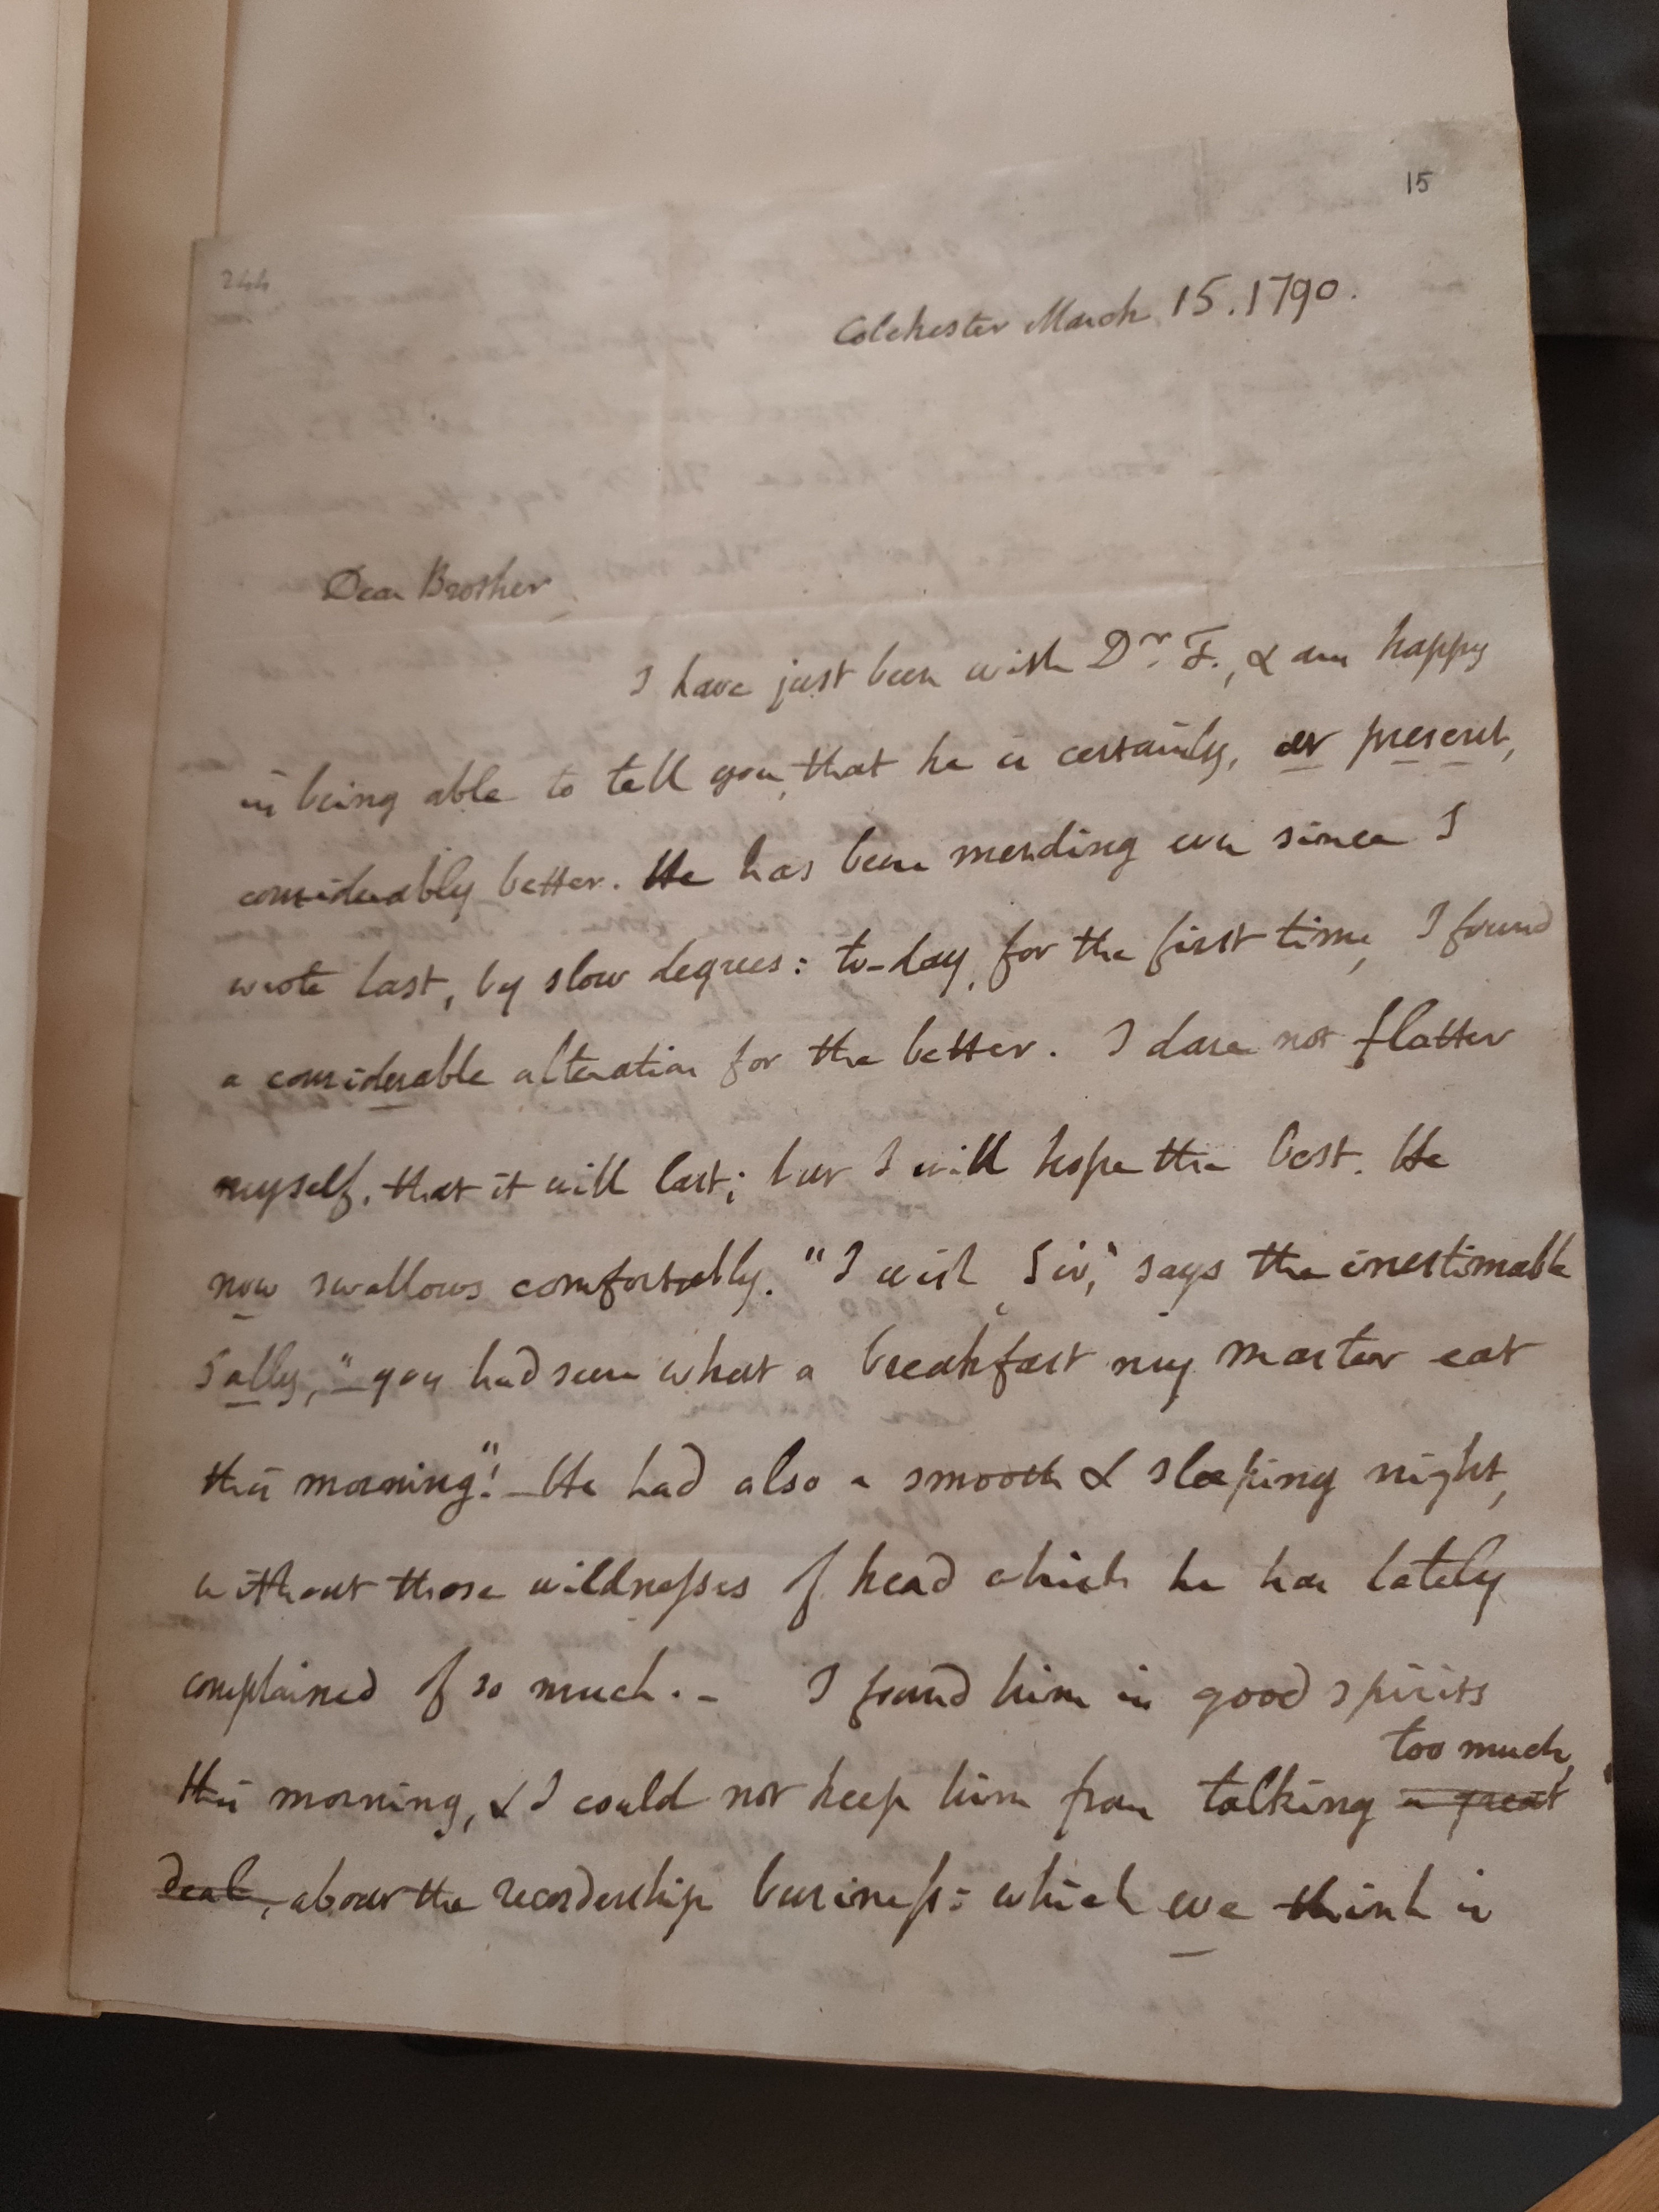 15
244
Colchester March 15. 1790.
Dear Brother
I have just been with Dr. F., & am happy
in being able to tell you, that he is certainly, at present,
considerably better. He has been mending ever since I
wrote last, by slow degrees: to-day, for the first time, I found
a considerable alteration for the better. I dare not flatter
myself, that it will last; but I will hope the best. He
now swallows comfortably. "I wish, Sir," says the inestimable
Sally, "you had seen what a breakfast my master eat
this morning"! - He had also a smooth & sleeping night,
without those wildnesses of head which he has lately
complained of so much. - I found him in good spirits
too much,
this morning, & I could not keep him from talking a great
deal, about the recordership business: which we think is